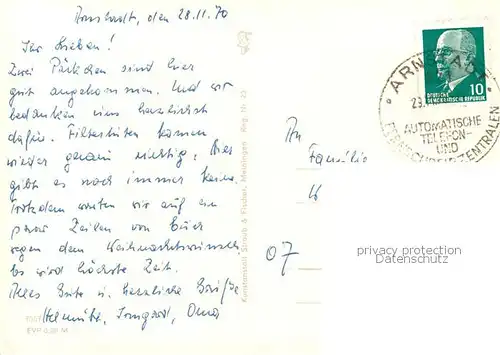 Arnstadt, den 28.11.70
Ihr Lieben!
Zwei Päckchen sind hier
gut angekommen. Und wir
bedanken uns herzlichst
dafür. Filtertüten kamen
wieder genau richtig. Hier
gibt es noch immer keine.
Trotzdem warten wir auf ein
paar Zeilen von Euch
wegen dem Weihnachtswunsch.
Es wird höchste Zeit.
Alles Gute u. herzliche Grüße
Helmut, Irmgard, Oma
EVP 0,20 M
Kunstanstalt Straub & Fischer, Meiningen
An
Familie
07
DEUTSCHE
DEMOKRATISCHE REPUBLIK
10
ARNSTADT
AUTOMATISCHE
TELEFON-
UND
FERNSCHREIBZENTRALEN
privacy protection
AnsichtskartenCenter.DE